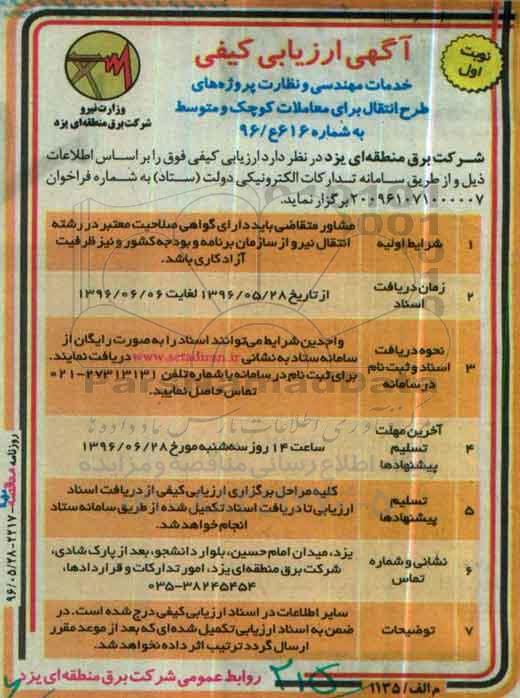 آگهی ارزیابی کیفی
نوبت اول
خدمات مهندسی و نظارت پروژه‌های
طرح انتقال برای معاملات کوچک و متوسط
به شماره ۶۱۶ع/۹۶
وزارت نیرو
شرکت برق منطقه‌ای یزد
شرکت برق منطقه‌ای یزد در نظر دارد ارزیابی کیفی فوق را بر اساس اطلاعات
ذیل و از طریق سامانه تدارکات الکترونیکی دولت (ستاد) به شماره فراخوان
۲۰۰۹۶۱۰۷۱۰۰۰۰۰۷ برگزار نماید.
۱
شرایط اولیه
مشاور متقاضی باید دارای گواهی صلاحیت معتبر در رشته
انتقال نیرو از سازمان برنامه و بودجه کشور و نیز ظرفیت
آزاد کاری باشد.
۲
زمان دریافت
اسناد
از تاریخ ۱۳۹۶/۰۵/۲۸ لغایت ۱۳۹۶/۰۶/۰۶
۳
نحوه دریافت
اسناد و ثبت نام
در سامانه
واجدین شرایط می‌توانند اسناد را به صورت رایگان از
سامانه ستاد به نشانی www.setadiran.ir دریافت نمایند.
برای ثبت نام در سامانه با شماره تلفن ۲۷۳۱۳۱۳۱-۰۲۱
تماس حاصل نمایید.
۴
آخرین مهلت
تسلیم
پیشنهادها
ساعت ۱۴ روز سه‌شنبه مورخ ۱۳۹۶/۰۶/۲۸
۵
تسلیم
پیشنهادها
کلیه مراحل برگزاری ارزیابی کیفی از دریافت اسناد
ارزیابی تا دریافت اسناد تکمیل شده از طریق سامانه ستاد
انجام خواهد شد.
۶
نشانی و شماره
تماس
یزد، میدان امام حسین، بلوار دانشجو، بعد از پارک شادی،
شرکت برق منطقه‌ای یزد، امور تدارکات و قراردادها،
۰۳۵-۳۸۲۴۵۴۵۴
۷
توضیحات
سایر اطلاعات در اسناد ارزیابی کیفی درج شده است. در
ضمن به اسناد ارزیابی تکمیل شده‌ای که بعد از موعد مقرر
ارسال گردد ترتیب اثر داده نخواهد شد.
روابط عمومی شرکت برق منطقه‌ای یزد
م الف/۱۱۳۵
روزنامه
۹۶/۰۵/۲۸-۲۲۱۷